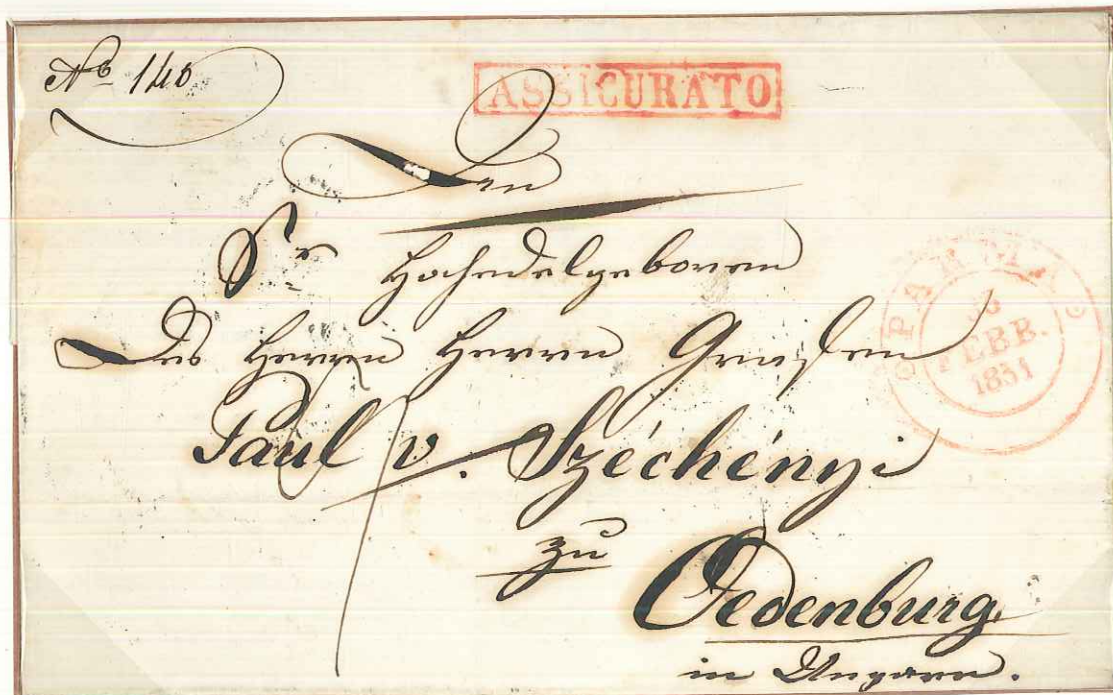 No 140
ASSICURATO
Den
Sr Hochedelgeboren
Des Herren Herrn Grafen
Paul v. Széchényi
zu
Oedenburg
in Ungarn.
PARMA
FEBB.
1851